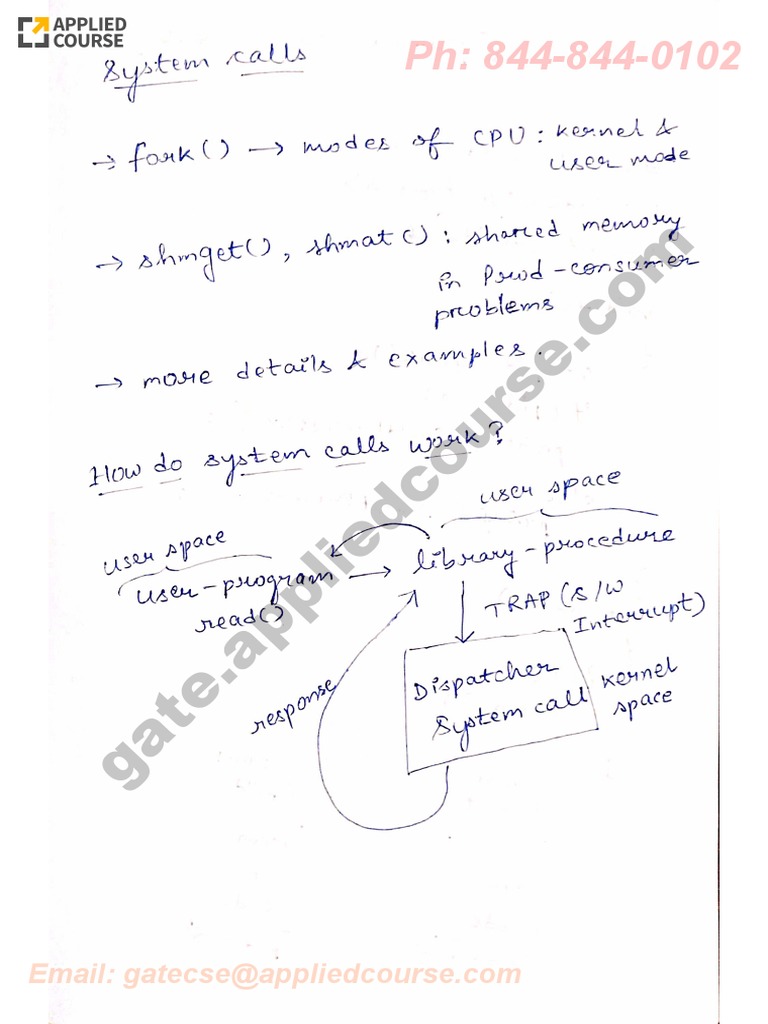 APPLIED
COURSE
Ph: 844-844-0102
System calls
→ fork() → modes of CPU : kernel &
user mode
→ shmget(), shmat() : shared memory
in Prod-consumer
problems
→ more details & examples.
How do system calls work?
user space
user space
user-program → library-procedure
read()
TRAP (S/W
Interrupt)
response
Dispatcher
System call
kernel
space
gate.appliedcourse.com
Email: gatecse@appliedcourse.com